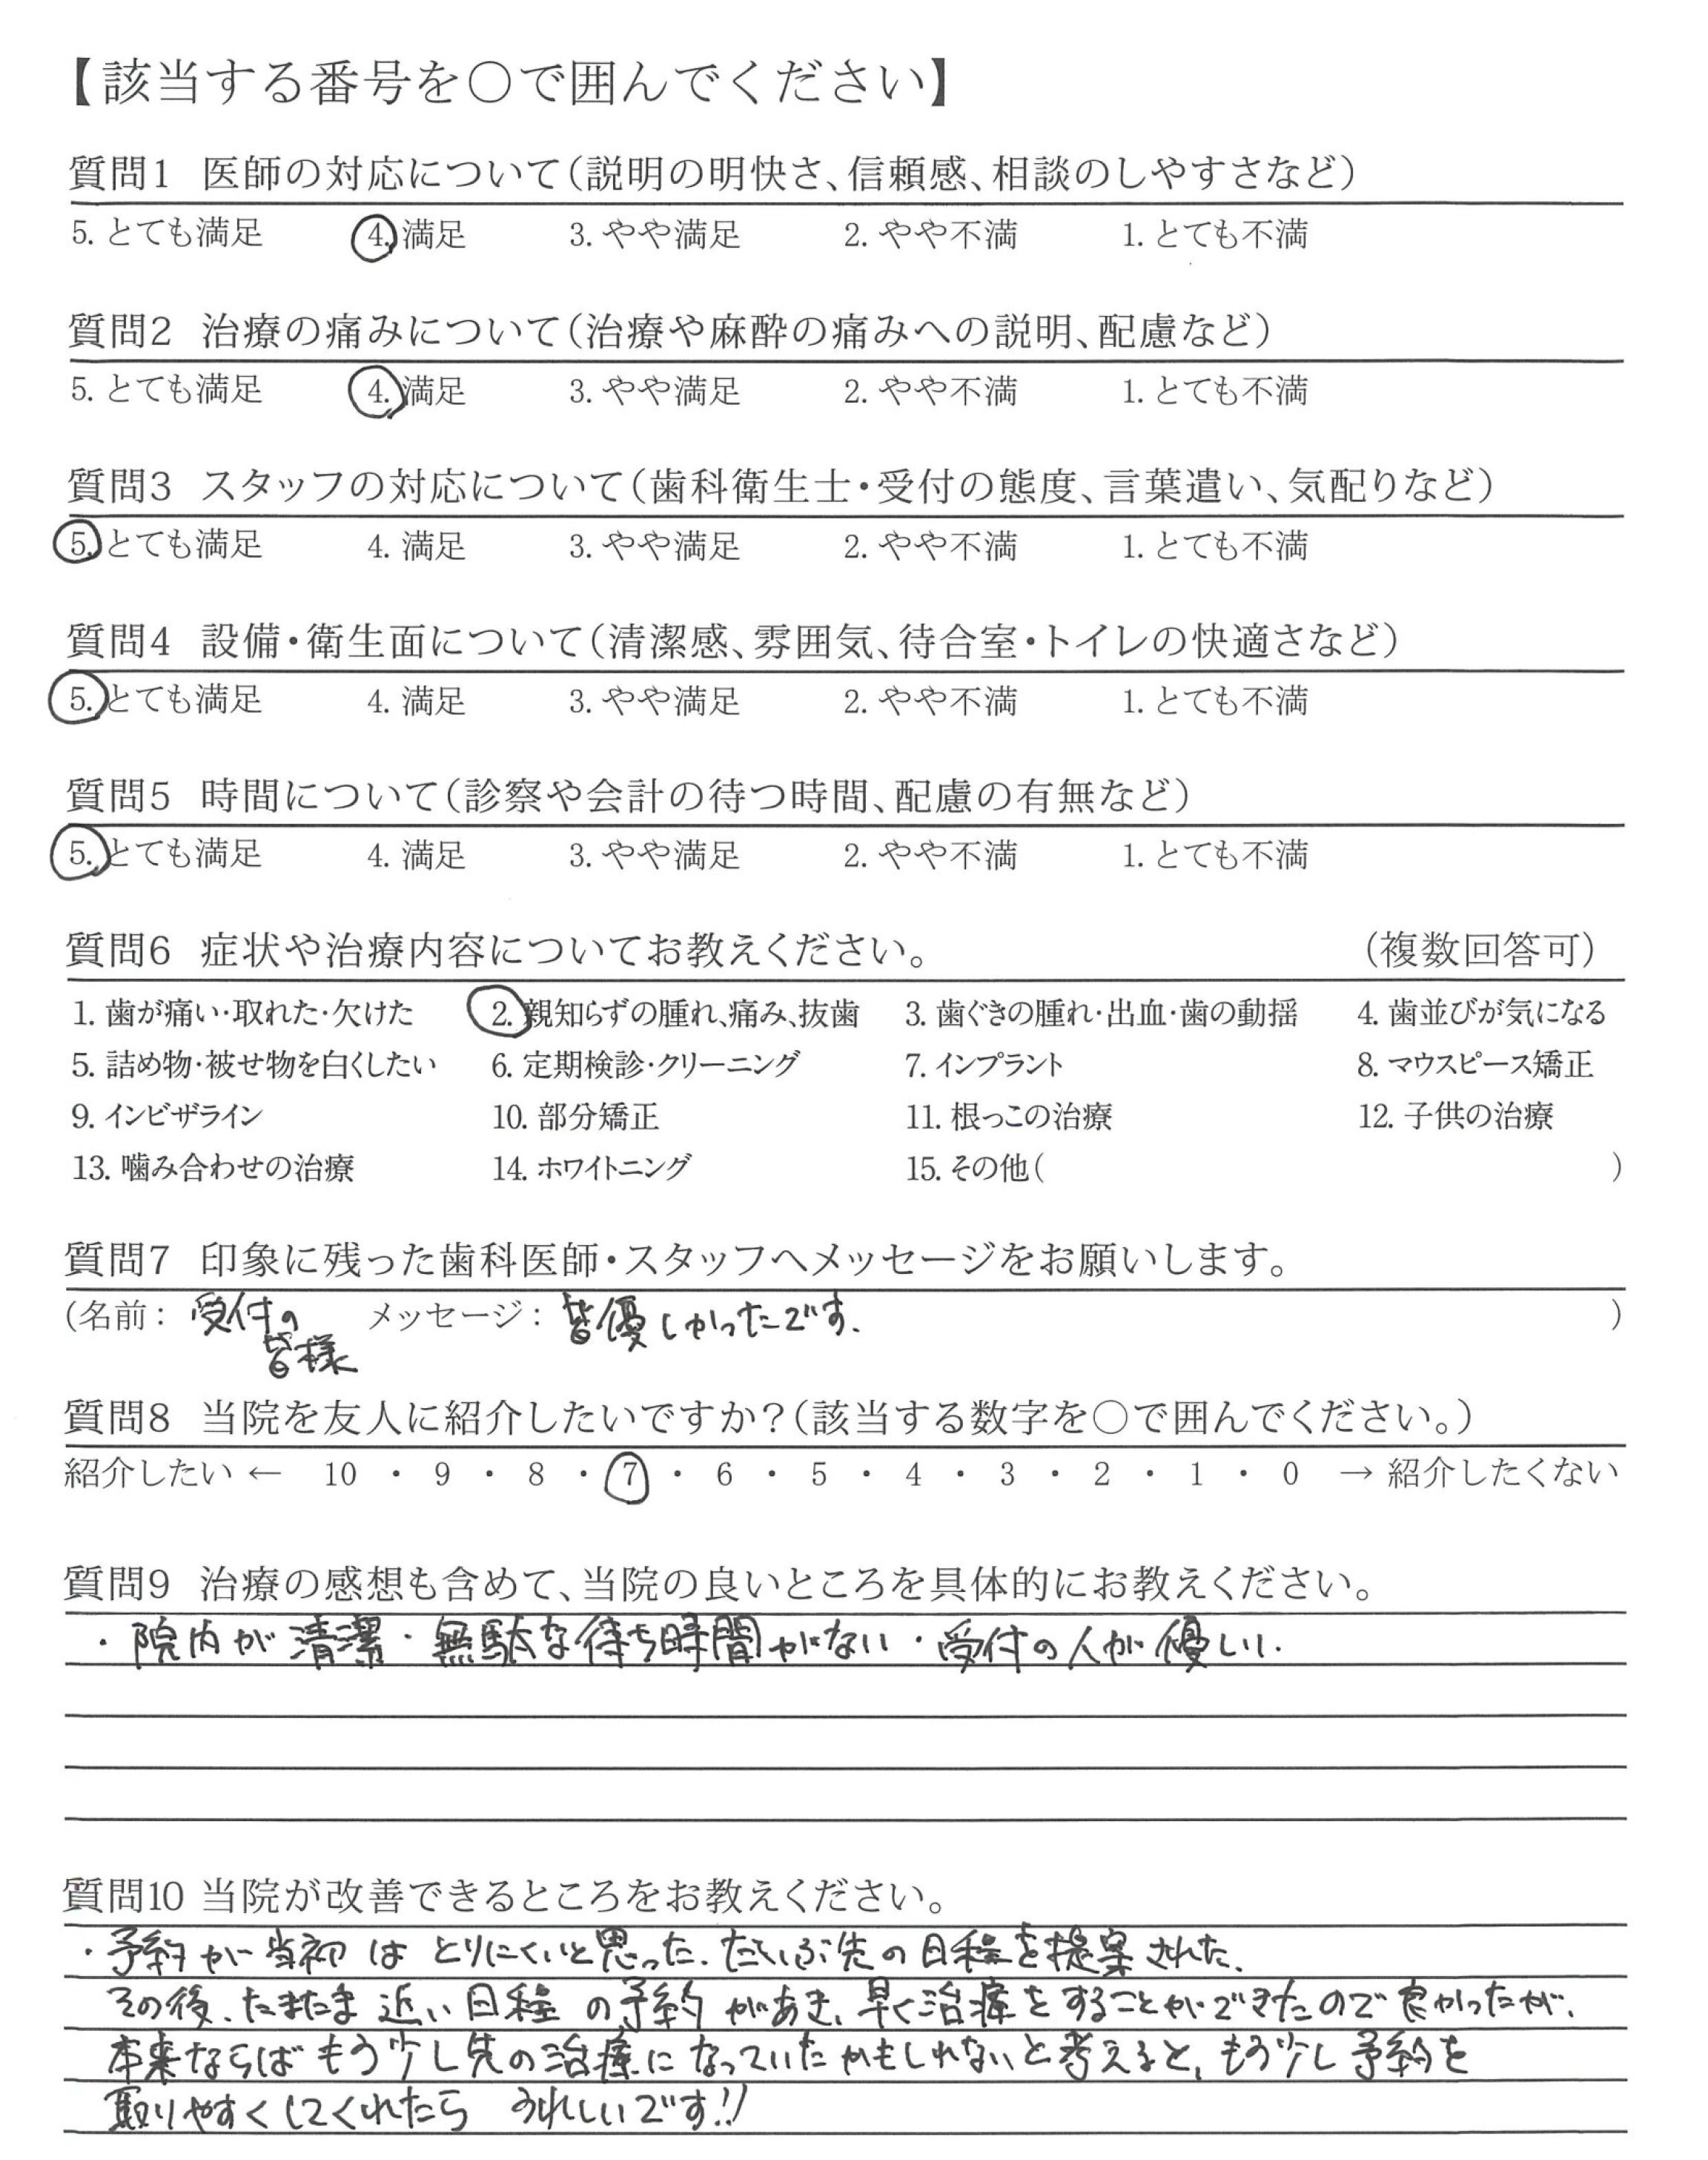 【該当する番号を〇で囲んでください】
質問1 医師の対応について(説明の明快さ、信頼感、相談のしやすさなど)
5. とても満足 4. 満足 3. やや満足 2. やや不満 1. とても不満
質問2 治療の痛みについて(治療や麻酔の痛みへの説明、配慮など)
5. とても満足 4. 満足 3. やや満足 2. やや不満 1. とても不満
質問3 スタッフの対応について(歯科衛生士・受付の態度、言葉遣い、気配りなど)
5. とても満足 4. 満足 3. やや満足 2. やや不満 1. とても不満
質問4 設備・衛生面について(清潔感、雰囲気、待合室・トイレの快適さなど)
5. とても満足 4. 満足 3. やや満足 2. やや不満 1. とても不満
質問5 時間について(診察や会計の待つ時間、配慮の有無など)
5. とても満足 4. 満足 3. やや満足 2. やや不満 1. とても不満
質問6 症状や治療内容についてお教えください。 (複数回答可)
1. 歯が痛い・取れた・欠けた 2. 親知らずの腫れ、痛み、抜歯 3. 歯ぐきの腫れ・出血・歯の動揺 4. 歯並びが気になる
5. 詰め物・被せ物を白くしたい 6. 定期検診・クリーニング 7. インプラント 8. マウスピース矯正
9. インビザライン 10. 部分矯正 11. 根っこの治療 12. 子供の治療
13. 噛み合わせの治療 14. ホワイトニング 15. その他( )
質問7 印象に残った歯科医師・スタッフへメッセージをお願いします。
(名前: 受付の皆様 メッセージ: 皆優しかったです. )
質問8 当院を友人に紹介したいですか?(該当する数字を〇で囲んでください。)
紹介したい ← 10 ・ 9 ・ 8 ・ 7 ・ 6 ・ 5 ・ 4 ・ 3 ・ 2 ・ 1 ・ 0 → 紹介したくない
質問9 治療の感想も含めて、当院の良いところを具体的にお教えください。
・院内が清潔・無駄な待ち時間がない・受付の人が優しい.
質問10 当院が改善できるところをお教えください。
・予約が当初はとりにくいと思った. だいぶ先の日程を提案された.
その後、たまたま近い日程の予約があき、早く治療をすることができたので良かったが、
本来ならばもう少し先の治療になっていたかもしれないと考えると、もう少し予約を
取りやすくしてくれたら うれしいです!!